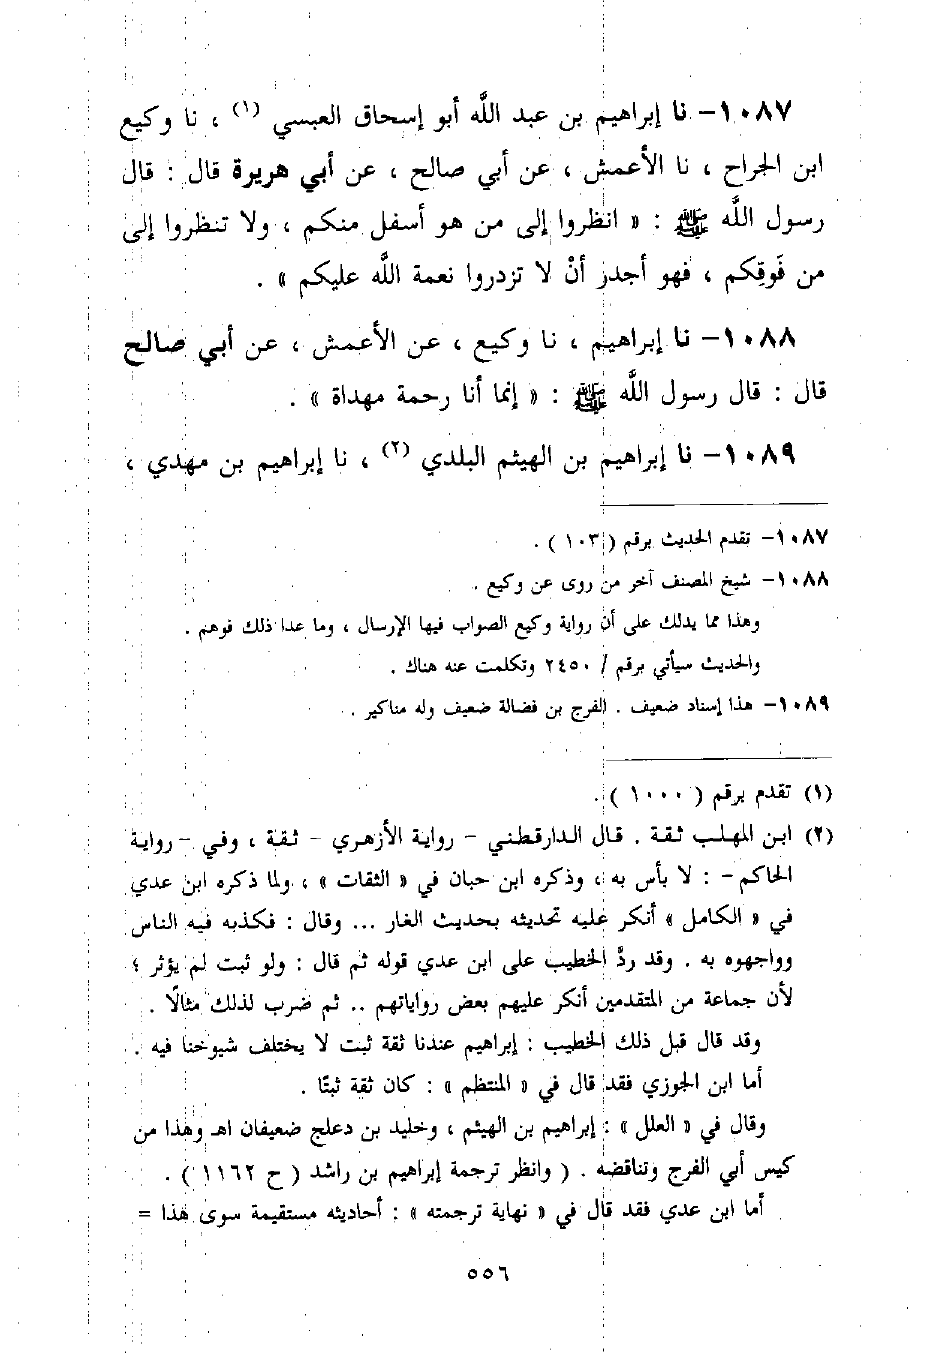 ١٠٨٧– نا إبراهيم بن عبد اللَّه أبو إسحاق العبسي (١) ، نا وكيع
ابن الجراح ، نا الأعمش ، عن أبي صالح ، عن أبي هريرة قال : قال
رسول اللَّه ﷺ : « انظروا إلى من هو أسفل منكم ، ولا تنظروا إلى
من فَوقِكم ، فهو أجدر أنْ لا تزدروا نعمة اللَّه عليكم » .
١٠٨٨– نا إبراهيم ، نا وكيع ، عن الأعمش ، عن أبي صالح
قال : قال رسول اللَّه ﷺ : « إنما أنا رحمة مهداة » .
١٠٨٩– نا إبراهيم بن الهيثم البلدي (٢) ، نا إبراهيم بن مهدي ،
١٠٨٧– تقدم الحديث برقم ( ١٠٣ ) .
١٠٨٨– شيخ المصنف آخر من روى عن وكيع .
وهذا مما يدلك على أن رواية وكيع الصواب فيها الإرسال ، وما عدا ذلك فوهم .
والحديث سيأتي برقم / ٢٤٥٠ وتكلمت عنه هناك .
١٠٨٩– هذا إسناد ضعيف . الفرج بن فضالة ضعيف وله مناكير .
(١) تقدم برقم ( ١٠٠٠ ) .
(٢) ابن المهلب ثقة . قال الدارقطني – رواية الأزهري – ثقة ، وفي – رواية
الحاكم – : لا بأس به ، وذكره ابن حبان في « الثقات » ، ولما ذكره ابن عدي
في « الكامل » أنكر عليه تحديثه بحديث الغار ... وقال : فكذبه فيه الناس
وواجهوه به . وقد ردَّ الخطيب على ابن عدي قوله ثم قال : ولو ثبت لم يؤثر ؛
لأن جماعة من المتقدمين أنكر عليهم بعض رواياتهم .. ثم ضرب لذلك مثالًا .
وقد قال قبل ذلك الخطيب : إبراهيم عندنا ثقة ثبت لا يختلف شيوخنا فيه .
أما ابن الجوزي فقد قال في « المنتظم » : كان ثقة ثبتًا .
وقال في « العلل » : إبراهيم بن الهيثم ، وخليد بن دعلج ضعيفان اهـ وهذا من
كيس أبي الفرج وتناقضه . ( وانظر ترجمة إبراهيم بن راشد ( ح ١١٦٢ ) .
أما ابن عدي فقد قال في « نهاية ترجمته » : أحاديثه مستقيمة سوى هذا =
٥٥٦